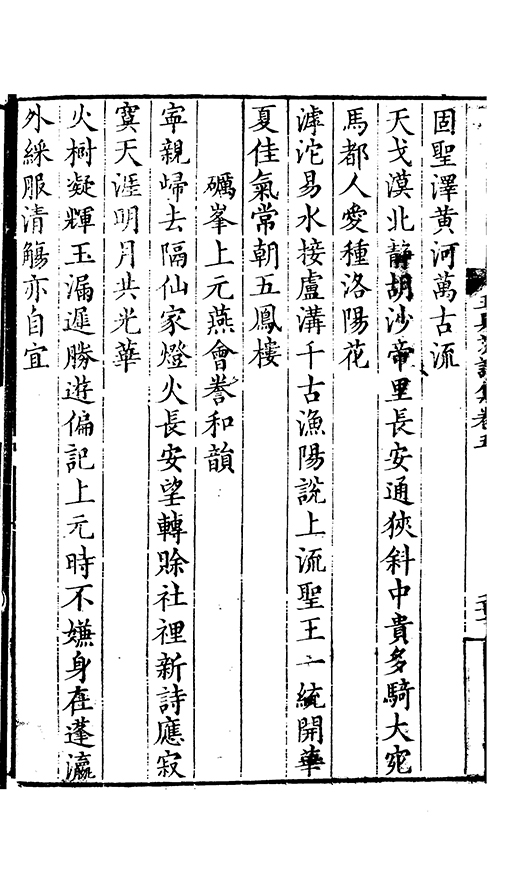 固聖澤黄河萬古流
天戈漠北静胡沙帝里長安通狹斜中貴多騎大宛
馬都人愛種洛陽花
滹沱易水接盧溝千古漁陽說上流聖王一統開華
夏佳氣常朝五鳳樓
礪峯上元燕會誊和韻
寜親㱕去隔仙家燈火長安望轉賒社裡新詩應寂
寞天涯明月共光華
火樹凝輝玉漏遲勝遊偏記上元時不嫌身在蓬瀛
外綵服清觴亦自宜